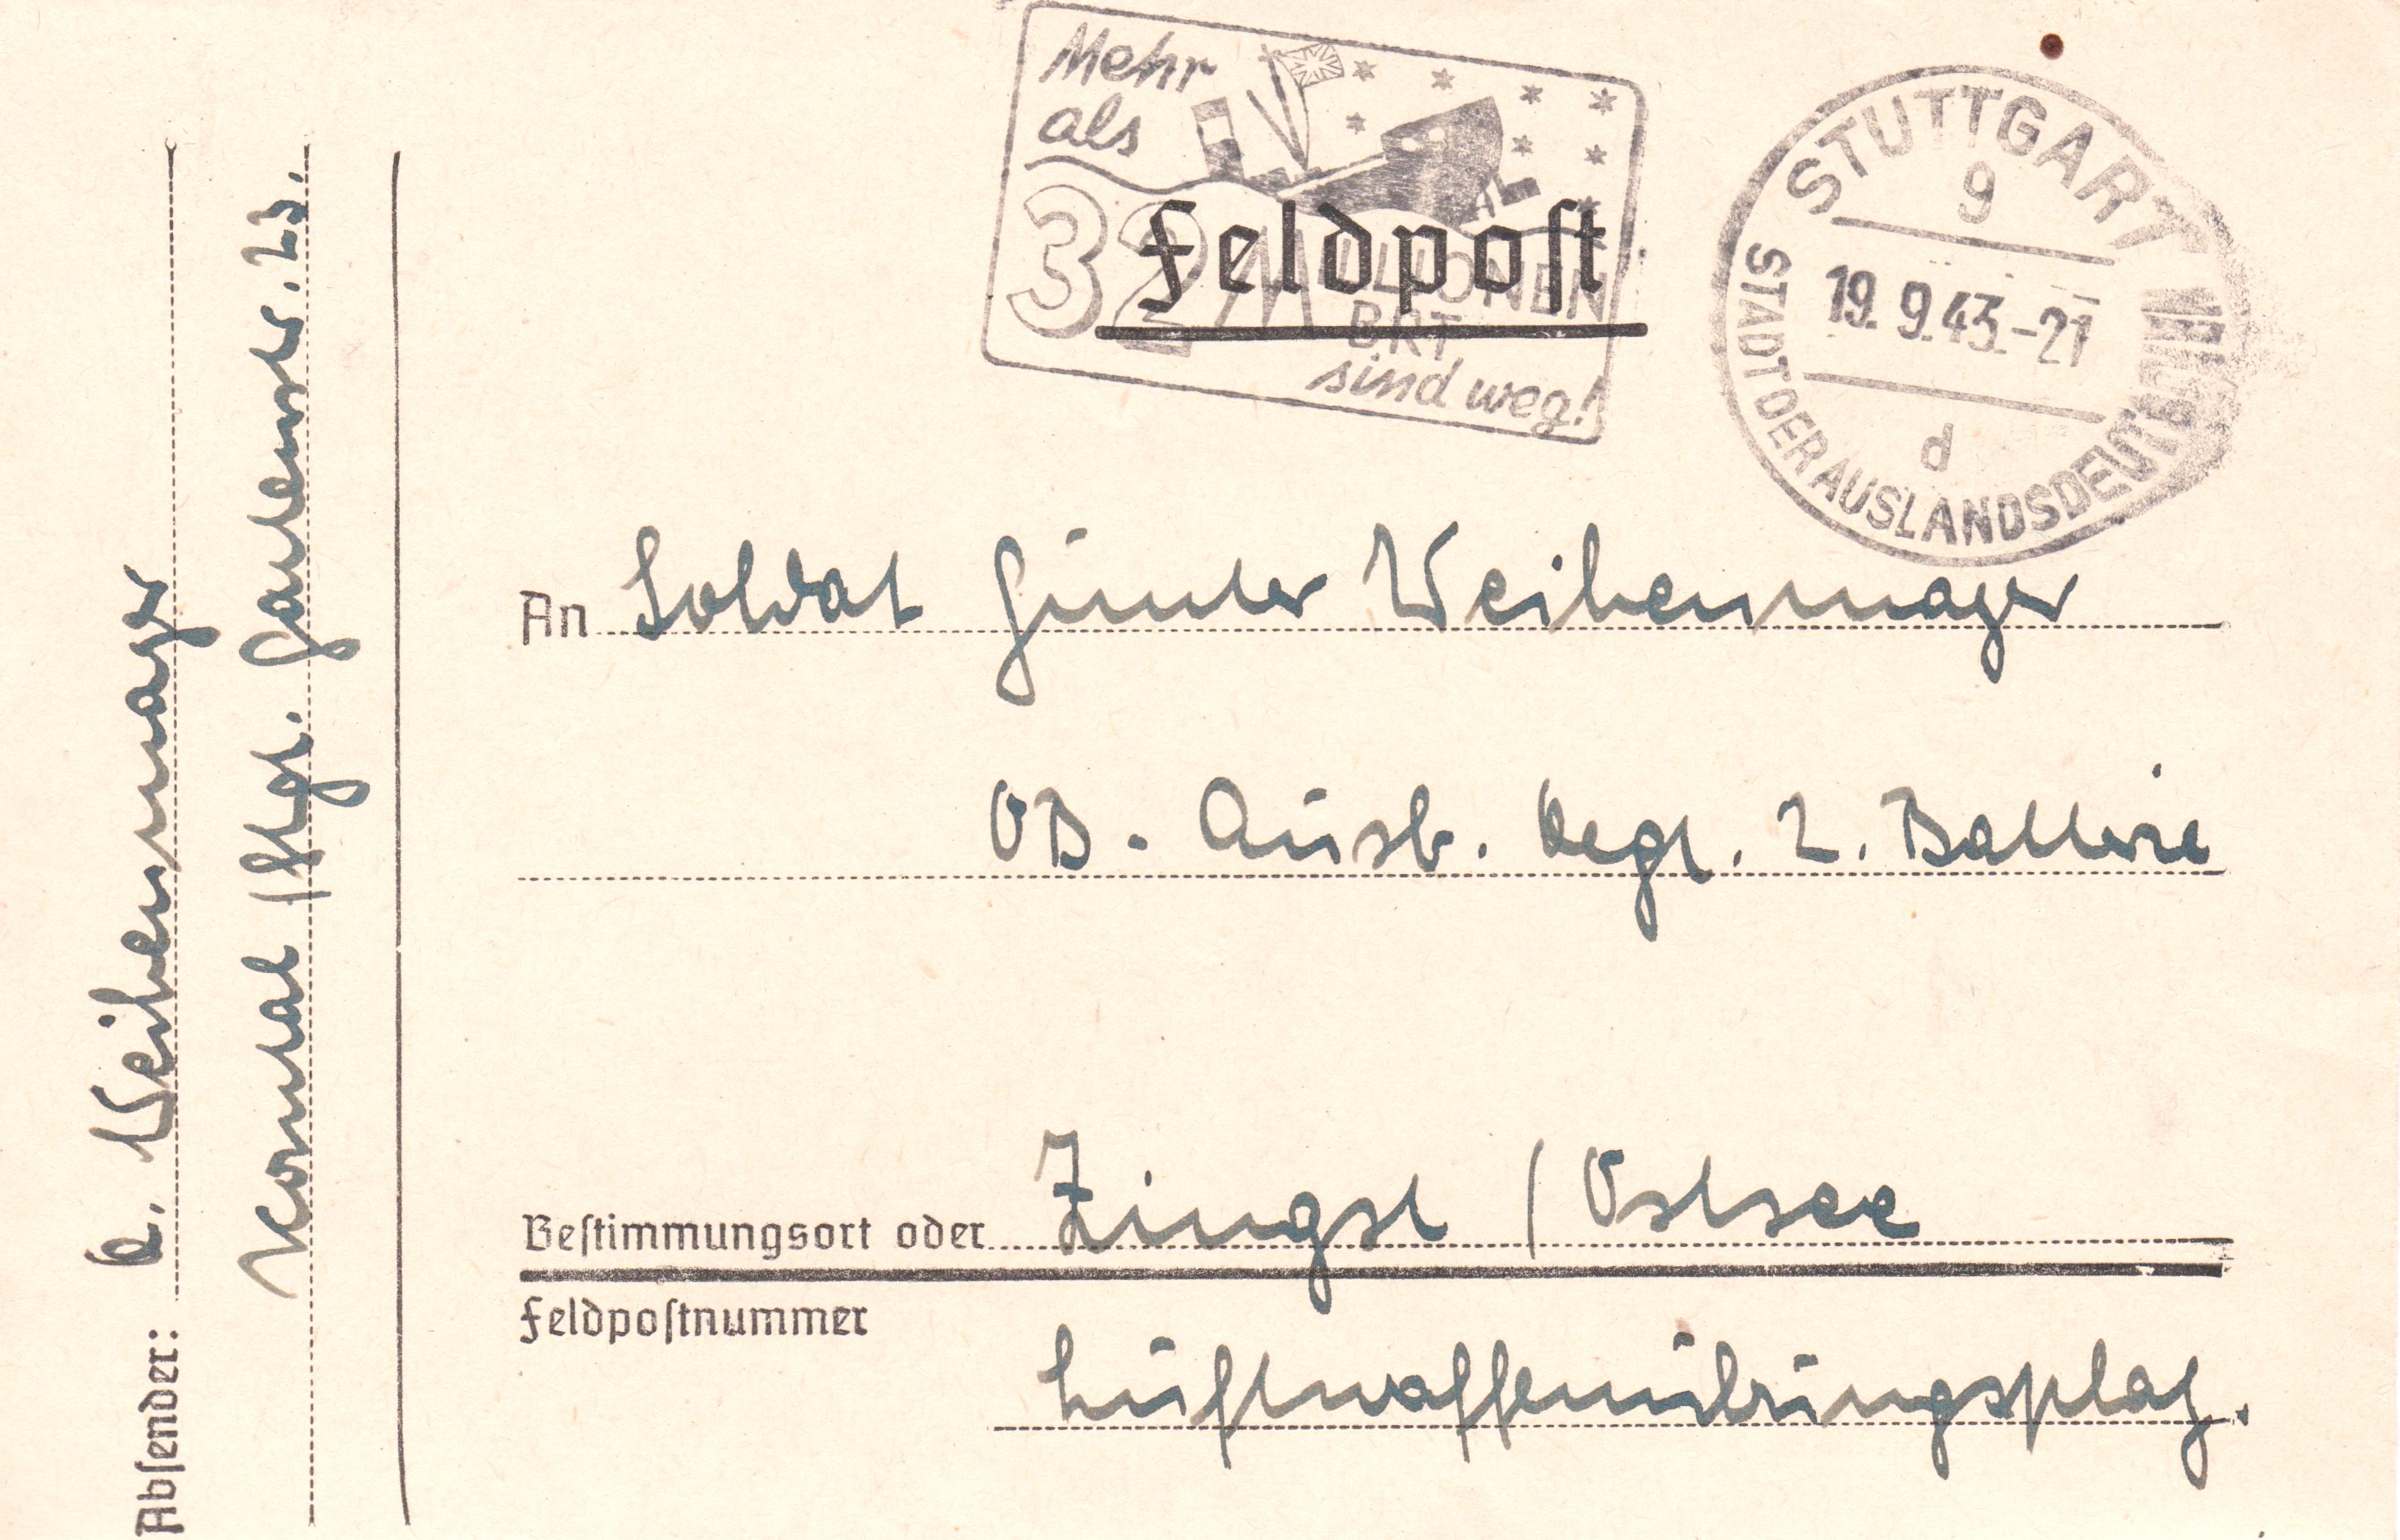 Mehr
als
32 MILLIONEN
BRT
sind weg!
STUTTGART
9
19. 9.43.-21
d
STADT DER AUSLANDSDEUT
Feldpost
An Soldat Günter Weihenmayer
OB - Ausb. Regt. 2. Batterie
Bestimmungsort oder Zingst / Ostsee
Feldpostnummer
Luftwaffenübungsplatz.
Absender: R. Weihenmayer
Korntal /Stgt. Gartenstr.